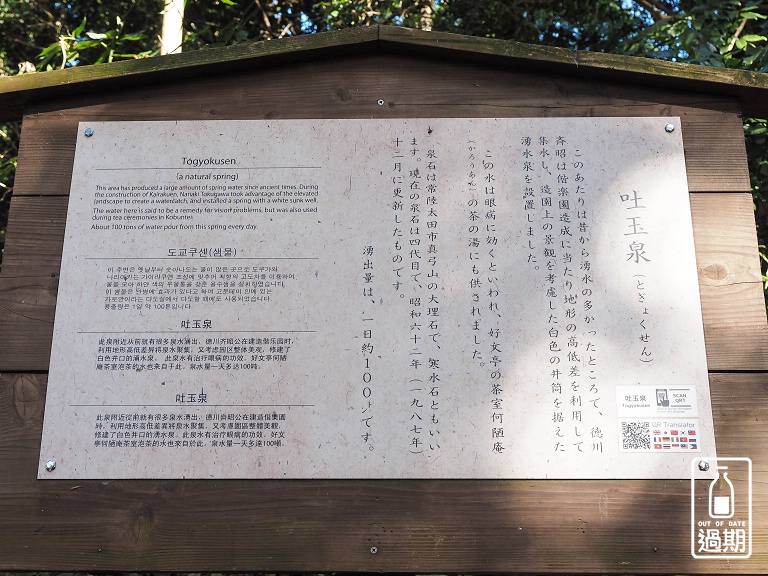 吐玉泉（とぎょくせん）
このあたりは昔から湧水の多かったところで、徳川
斉昭は偕楽園造成に当たり地形の高低差を利用して
集水し、造園上の景観を考慮した白色の井筒を据えた
湧水泉を設置しました。
この水は眼病に効くといわれ、好文亭の茶室何陋庵
（かろうあん）の茶の湯にも供されました。
泉石は常陸太田市真弓山の大理石で、寒水石ともいい
ます。現在の泉石は四代目で、昭和六十二年（一九八七年）
十二月に更新したものです。
湧出量は、一日約１００トンです。
Togyokusen
(a natural spring)
This area has produced a large amount of spring water since ancient times. During
the construction of Kairakuen, Nariaki Tokugawa took advantage of the elevated
landscape to create a watercatch, and installed a spring with a white sunk well.
The water here is said to be a remedy for vision problems, but was also used
during tea ceremonies in Kobuntei.
About 100 tons of water pour from this spring every day.
도교쿠센(샘물)
吐玉泉
此泉附近从前就有很多泉水涌出，德川齐昭公在建造偕乐园时，
利用地形高低差异将泉水聚集，又考虑园区整体美观，修建了
白色井口的涌水泉。此泉水有治疗眼病的功效，好文亭何陋
庵茶室泡茶的水也来自于此。泉水量一天多达100吨。
吐玉泉
此泉附近從前就有很多泉水湧出，德川齊昭公在建造偕樂園
時，利用地形高低差異將泉水聚集，又考慮園區整體美觀，
修建了白色井口的湧水泉。此泉水有治疗眼病的功效，好文
亭何陋庵茶室泡茶的水也來自於此，泉水量一天多達100噸。
吐玉泉
Togyokusen
SCAN
QRT
QR Translator
OUT OF DATE
過期